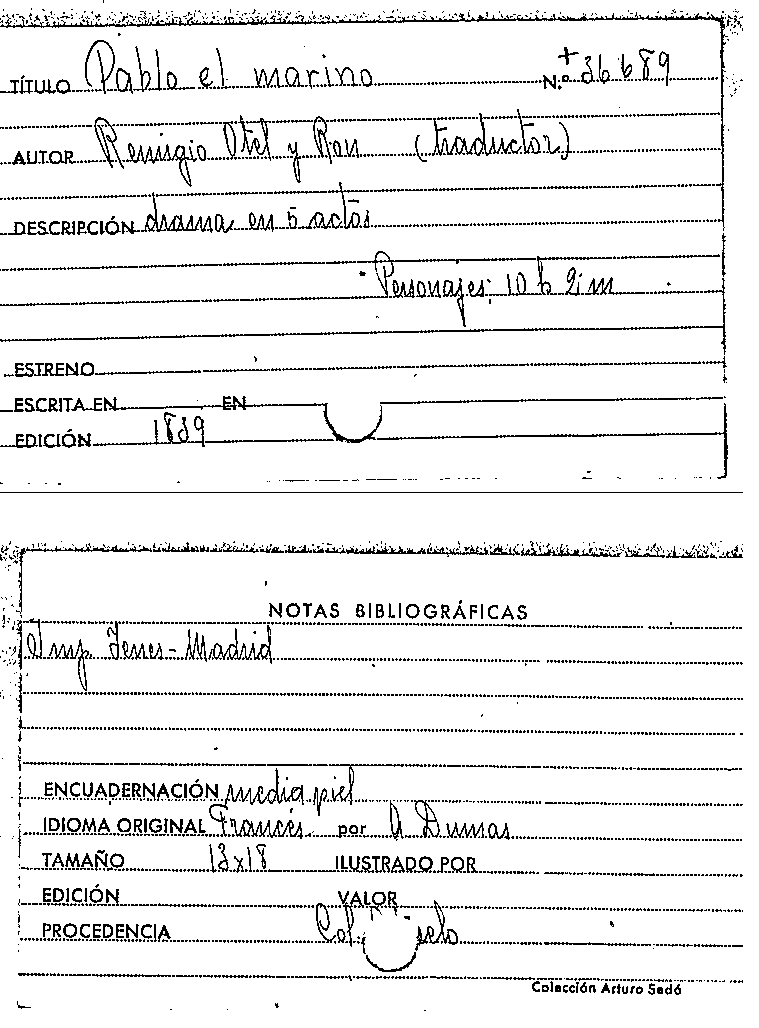 TÍTULO Pablo el marino N.º + 36689
AUTOR Remigio Otel y Ron (traductor)
DESCRIPCIÓN drama en 5 actos
Personajes: 10 h 2 m
ESTRENO
ESCRITA EN EN
EDICIÓN 1839
NOTAS BIBLIOGRÁFICAS
Imp. Yenes - Madrid
ENCUADERNACIÓN media piel
IDIOMA ORIGINAL Francés por A Dumas
TAMAÑO 13x18 ILUSTRADO POR
EDICIÓN VALOR
PROCEDENCIA Col.
Colección Arturo Sedó